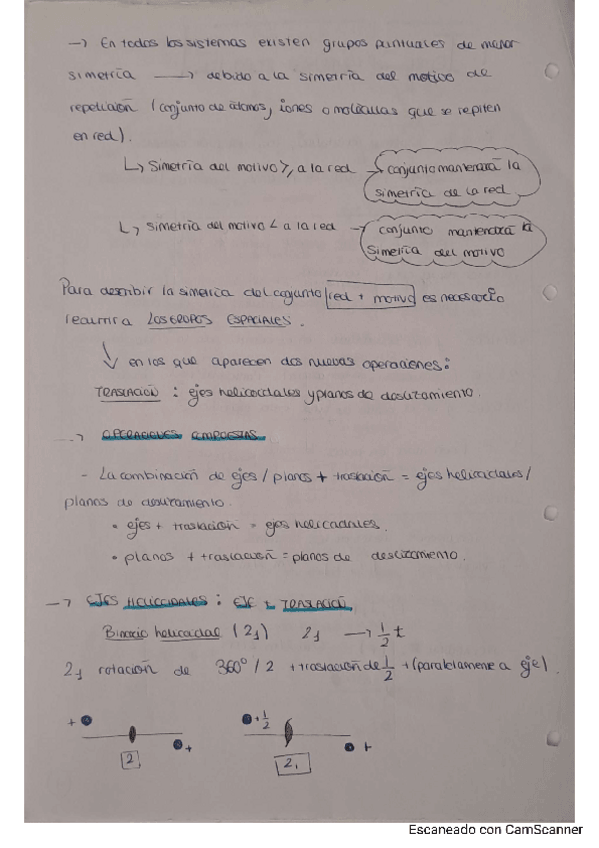 → En todos los sistemas existen grupos puntuales de menor
simetría → debido a la simetría del motivo de
repetición (conjunto de átomos, iones o moléculas que se repiten
en red).
↳ Simetría del motivo ≥ a la red → conjunto mantendrá la
simetría de la red
↳ simetría del motivo < a la red → conjunto mantendrá la
simetría del motivo
Para describir la simetría del conjunto red + motivo es necesario
recurrir a LOS GRUPOS ESPACIALES.
↓ en los que aparecen dos nuevas operaciones:
TRASLACIÓN : ejes helicoidales y planos de deslizamiento.
→ OPERACIONES COMPUESTAS
- La combinación de ejes / planos + traslación = ejes helicoidales /
planos de deslizamiento.
• ejes + traslación = ejes helicoidales.
• planos + traslación = planos de deslizamiento.
→ EJES HELICOIDALES : EJE + TRASLACIÓN
Binario helicoidal (2₁) 2₁ → 1/2 t
2₁ rotación de 360° / 2 + traslación de 1/2 + (paralelamente a eje).
+ +1/2
+ +
2 2₁
Escaneado con CamScanner